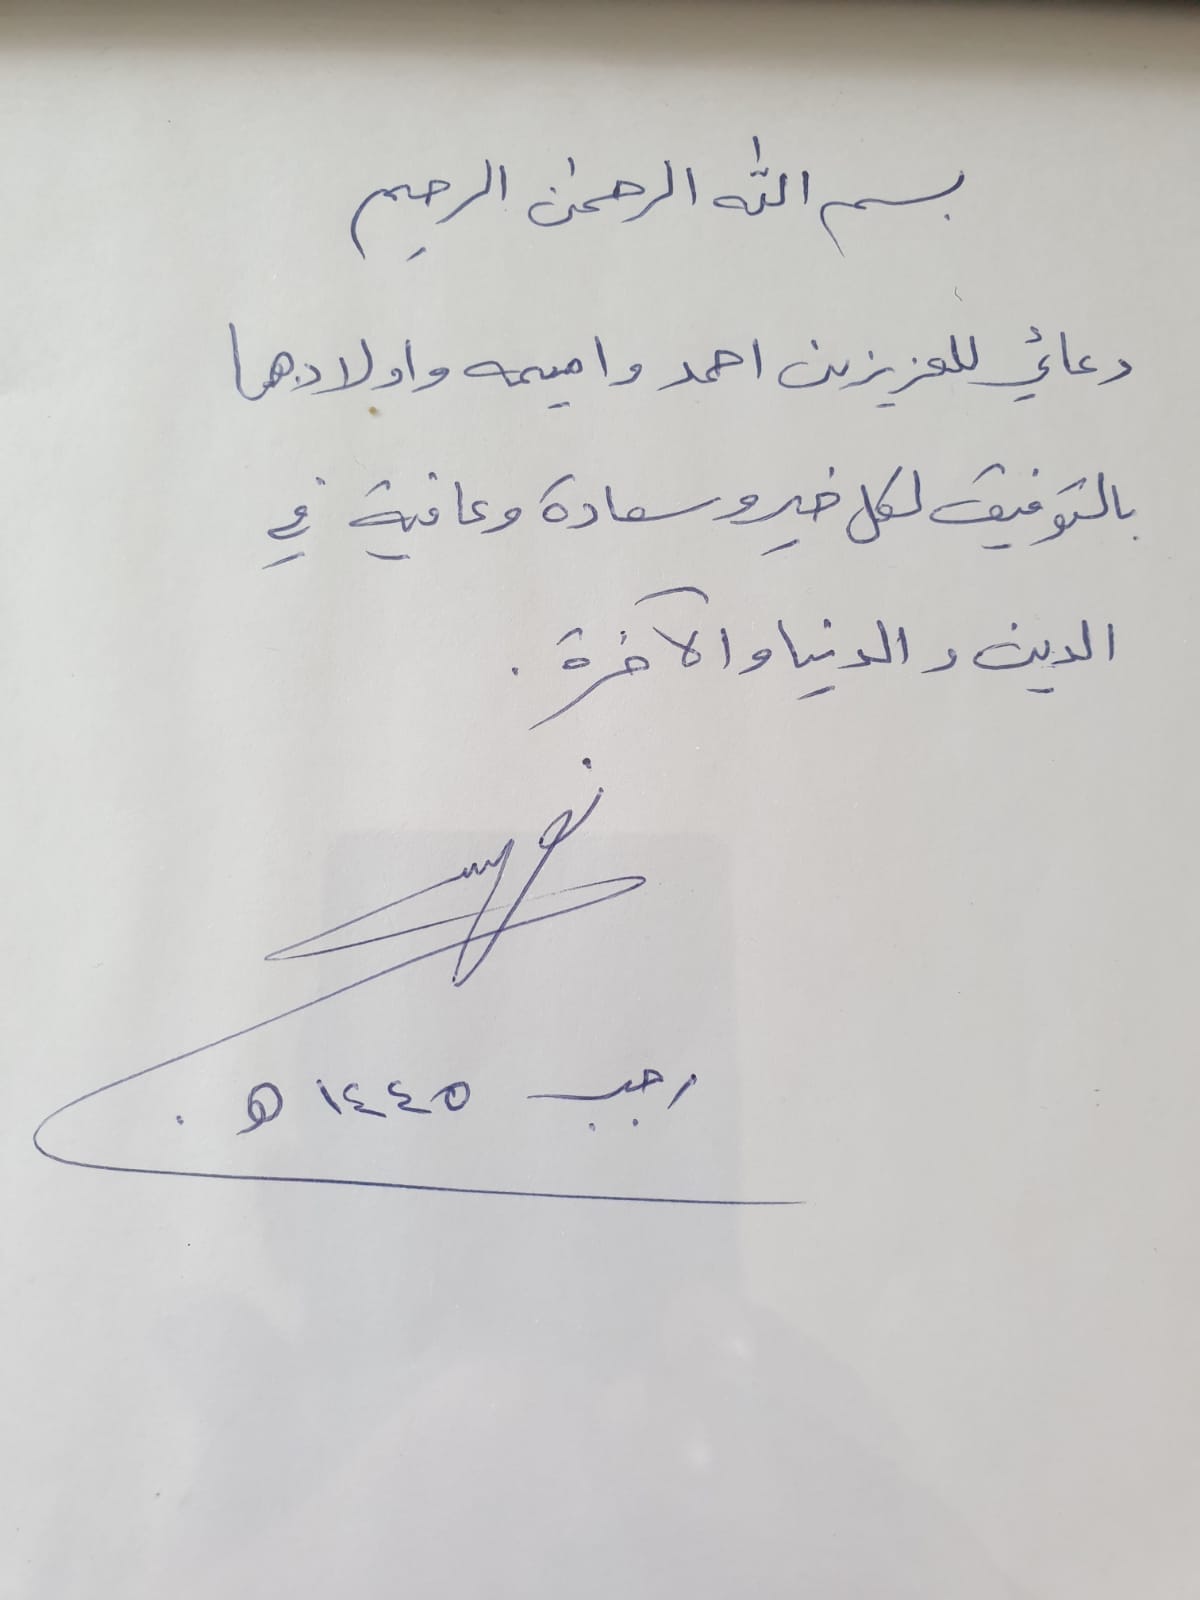 بسم الله الرحمن الرحيم
دعائي للعزيزين احمد واميمه واولادهما
بالتوفيق لكل خير وسعادة وعافية في
الدين والدنيا والآخرة .
رجب ١٤٤٥ ه .